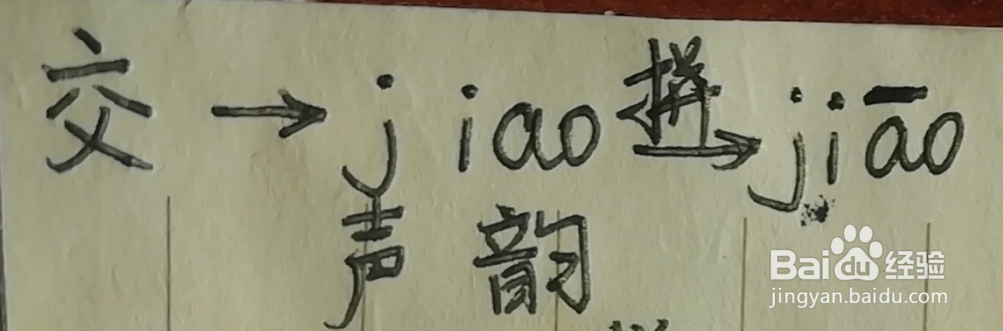 交 → j iao 拼→ jiāo
声 韵
Baidu经验
jingyan.baidu.com